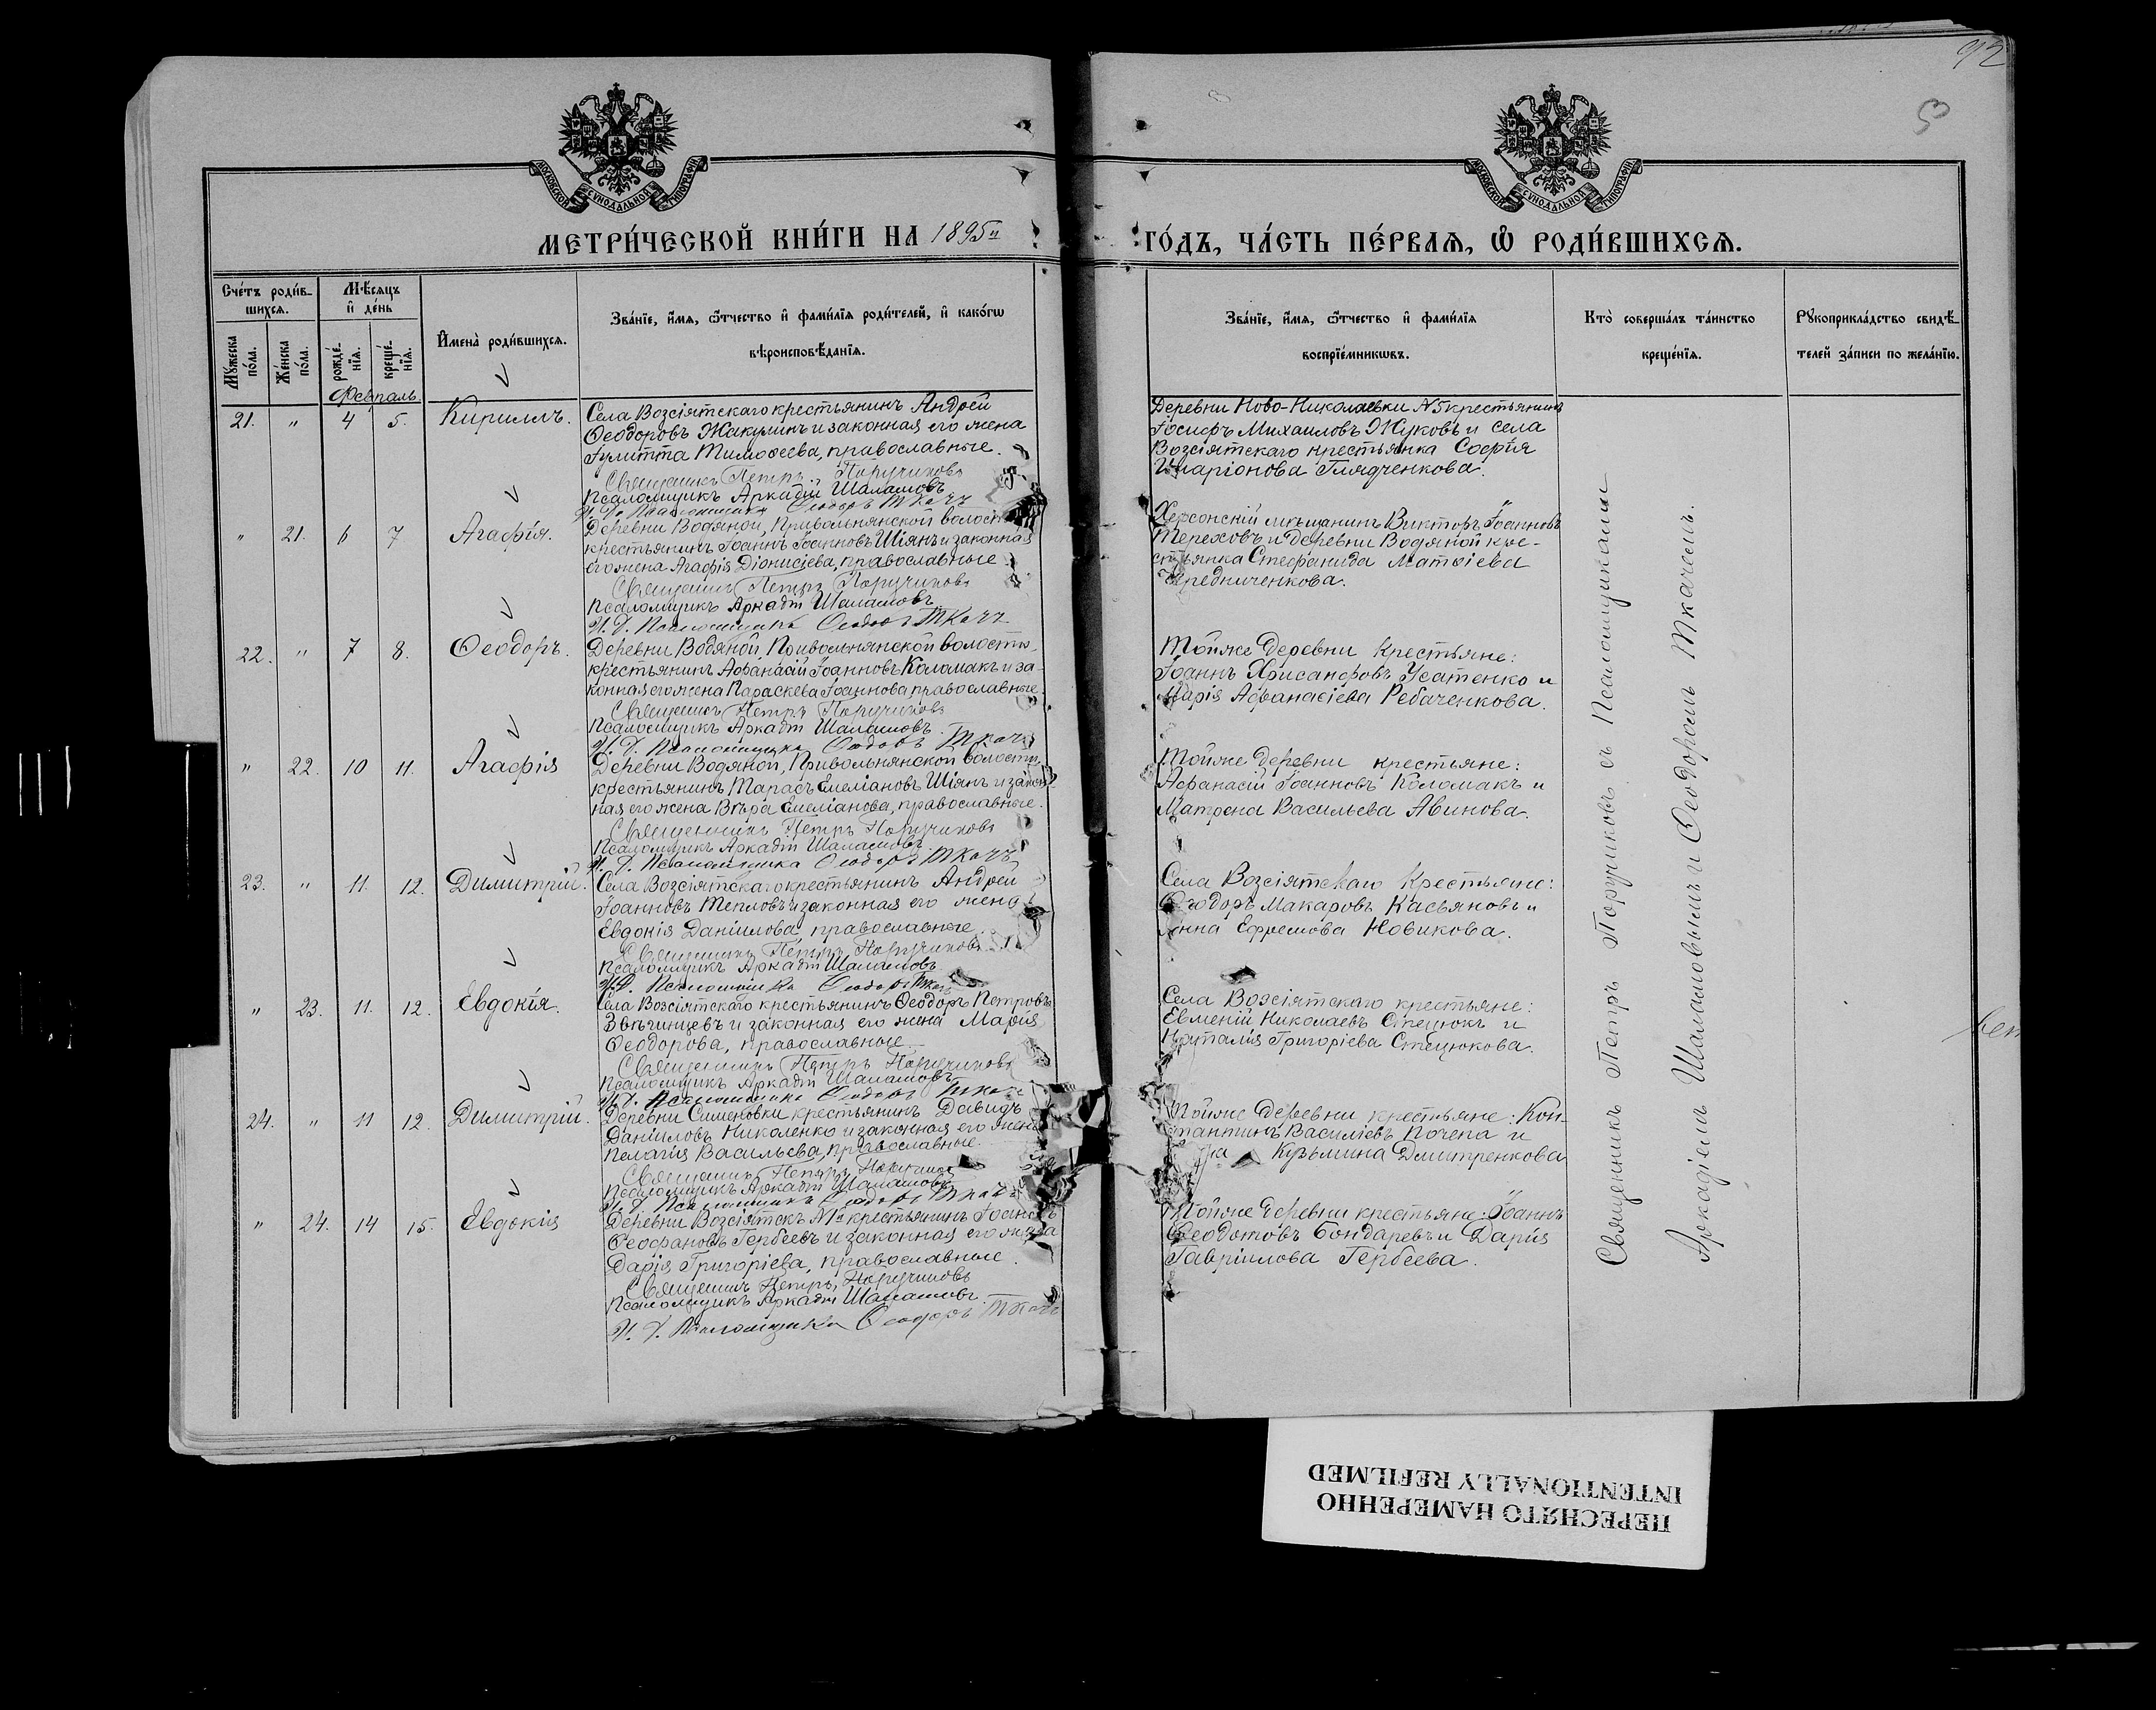 92
МОСКОВСКОЙ СѴНОДАЛЬНОЙ ТИПОГРАФІИ
МОСКОВСКОЙ СѴНОДАЛЬНОЙ ТИПОГРАФІИ
МЕТРИ́ЧЕСКОЙ КНИ́ГИ НА 1895й ГО́ДЪ, ЧА́СТЬ ПЕ́РВАѦ, Ѽ РОДИ́ВШИХСѦ.
Сче́тъ роди́в-
шихсѧ.
Мꙋ́жеска по́ла.
Же́нска по́ла.
Мѣ́сѧцъ
и҆ де́нь
рожде́-
нїѧ.
креще́-
нїѧ.
И҆мена̀ роди́вшихсѧ.
Зва́нїе, и҆́мѧ, ѻ҆́тчество и҆ фами́лїѧ роди́телей, и҆ како́гѡ
вѣроисповѣ́данїѧ.
Зва́нїе, и҆́мѧ, ѻ҆́тчество и҆ фами́лїѧ
воспрїе́мникѡвъ.
Кто̀ соверша́лъ та́инство
креще́нїѧ.
Рꙋкоприкла́дство свидѣ́-
телей за́писи по жела́нїю.
Февраль
21. " 4 5. Кириллъ.
Села Возсіятскаго крестьянинъ Андрей
Ѳеодоровъ Жакулинъ и законная его жена
Іулитта Тимоѳеева, православные.
Священникъ Петръ Поручиковъ
Псаломщикъ Аркадій Шаламовъ
И. Д. Псаломщика Ѳеодоръ Ткачъ
Деревни Ново-Николаевки №5 крестьянинъ
Іосифъ Михаиловъ Жуковъ и села
Возсіятскаго крестьянка Софія
Иларіонова Глядченкова.
" 21. 6 7 Агафія.
Деревни Водяной, Привольнянской волости
крестьянинъ Іоаннъ Іоанновъ Шіянъ и законная
его жена Агафія Діонисіева, православные.
Священникъ Петръ Поручиковъ
Псаломщикъ Аркадій Шаламовъ
И. Д. Псаломщика Ѳеодоръ Ткачъ
Херсонскій мѣщанинъ Викторъ Іоанновъ
Тереховъ и деревни Водяной кре-
стьянка Стефанида Матѳіева
Чередниченкова.
22. " 7 8. Ѳеодоръ.
Деревни Водяной, Привольнянской волости,
крестьянинъ Афанасій Іоанновъ Коломакъ и за-
конная его жена Параскева Іоаннова, православные.
Священникъ Петръ Поручиковъ
Псаломщикъ Аркадій Шаламовъ.
И. Д. Псаломщика Ѳеодоръ Ткачъ
Тойже деревни крестьяне:
Іоаннъ Хрисанфовъ Усатенко и
Марія Афанасіева Ребаченкова.
" 22. 10 11. Агафія
Деревни Водяной, Привольнянской волости
крестьянинъ Тарасъ Емеліановъ Шіянъ и закон-
ная его жена Вѣра Емеліанова, православные.
Священникъ Петръ Поручиковъ
Псаломщикъ Аркадій Шаламовъ
И. Д. Псаломщика Ѳеодоръ Ткачъ
Тойже деревни крестьяне:
Афанасій Іоанновъ Коломакъ и
Матрона Васильева Авинова.
23. " 11. 12. Димитрій.
Села Возсіятскаго крестьянинъ Андрей
Іоанновъ Тепловъ и законная его жена
Евдокія Даніилова, православные.
Священникъ Петръ Поручиковъ
Псаломщикъ Аркадій Шаламовъ
И. Д. Псаломщика Ѳеодоръ Ткачъ
Села Возсіятскаго Крестьяне:
Ѳеодоръ Макаровъ Касьяновъ и
Анна Ефремова Новикова.
" 23. 11. 12. Евдокія.
Села Возсіятскаго крестьянинъ Ѳеодоръ Петровъ
Звѣгинцевъ и законная его жена Марія
Ѳеодорова, православные.
Священникъ Петръ Поручиковъ
Псаломщикъ Аркадій Шаламовъ
И. Д. Псаломщика Ѳеодоръ Ткачъ
Села Возсіятскаго крестьяне:
Евменій Николаевъ Стецюкъ и
Наталія Григоріева Стецюкова.
24. " 11 12. Димитрій.
Деревни Сименовки крестьянинъ Давидъ
Даніиловъ Николенко и законная его жена
Пелагія Васильева, православные.
Священникъ Петръ Поручиковъ
Псаломщикъ Аркадій Шаламовъ
И. Д. Псаломщика Ѳеодоръ Ткачъ
Тойже деревни крестьяне: Кон-
стантинъ Василіевъ Почепа и
Кузьмина Дмитренкова
" 24. 14 15. Евдокія
Деревни Возсіятскъ крестьянинъ Іоаннъ
Ѳеофановъ Гербеевъ и законная его жена
Дарія Григоріева, православные.
Священникъ Петръ Поручиковъ
Псаломщикъ Аркадій Шаламовъ.
И. Д. Псаломщика Ѳеодоръ Ткачъ
Тойже деревни крестьяне: Іоаннъ
Ѳеодотовъ Бондаревъ и Дарія
Гавріилова Гербеева.
Священникъ Петръ Поручиковъ съ Псаломщиками
Аркадіемъ Шаламовымъ и Ѳеодоромъ Ткачемъ.
ПЕРЕСНЯТО НАМЕРЕННО
INTENTIONALLY REFILMED